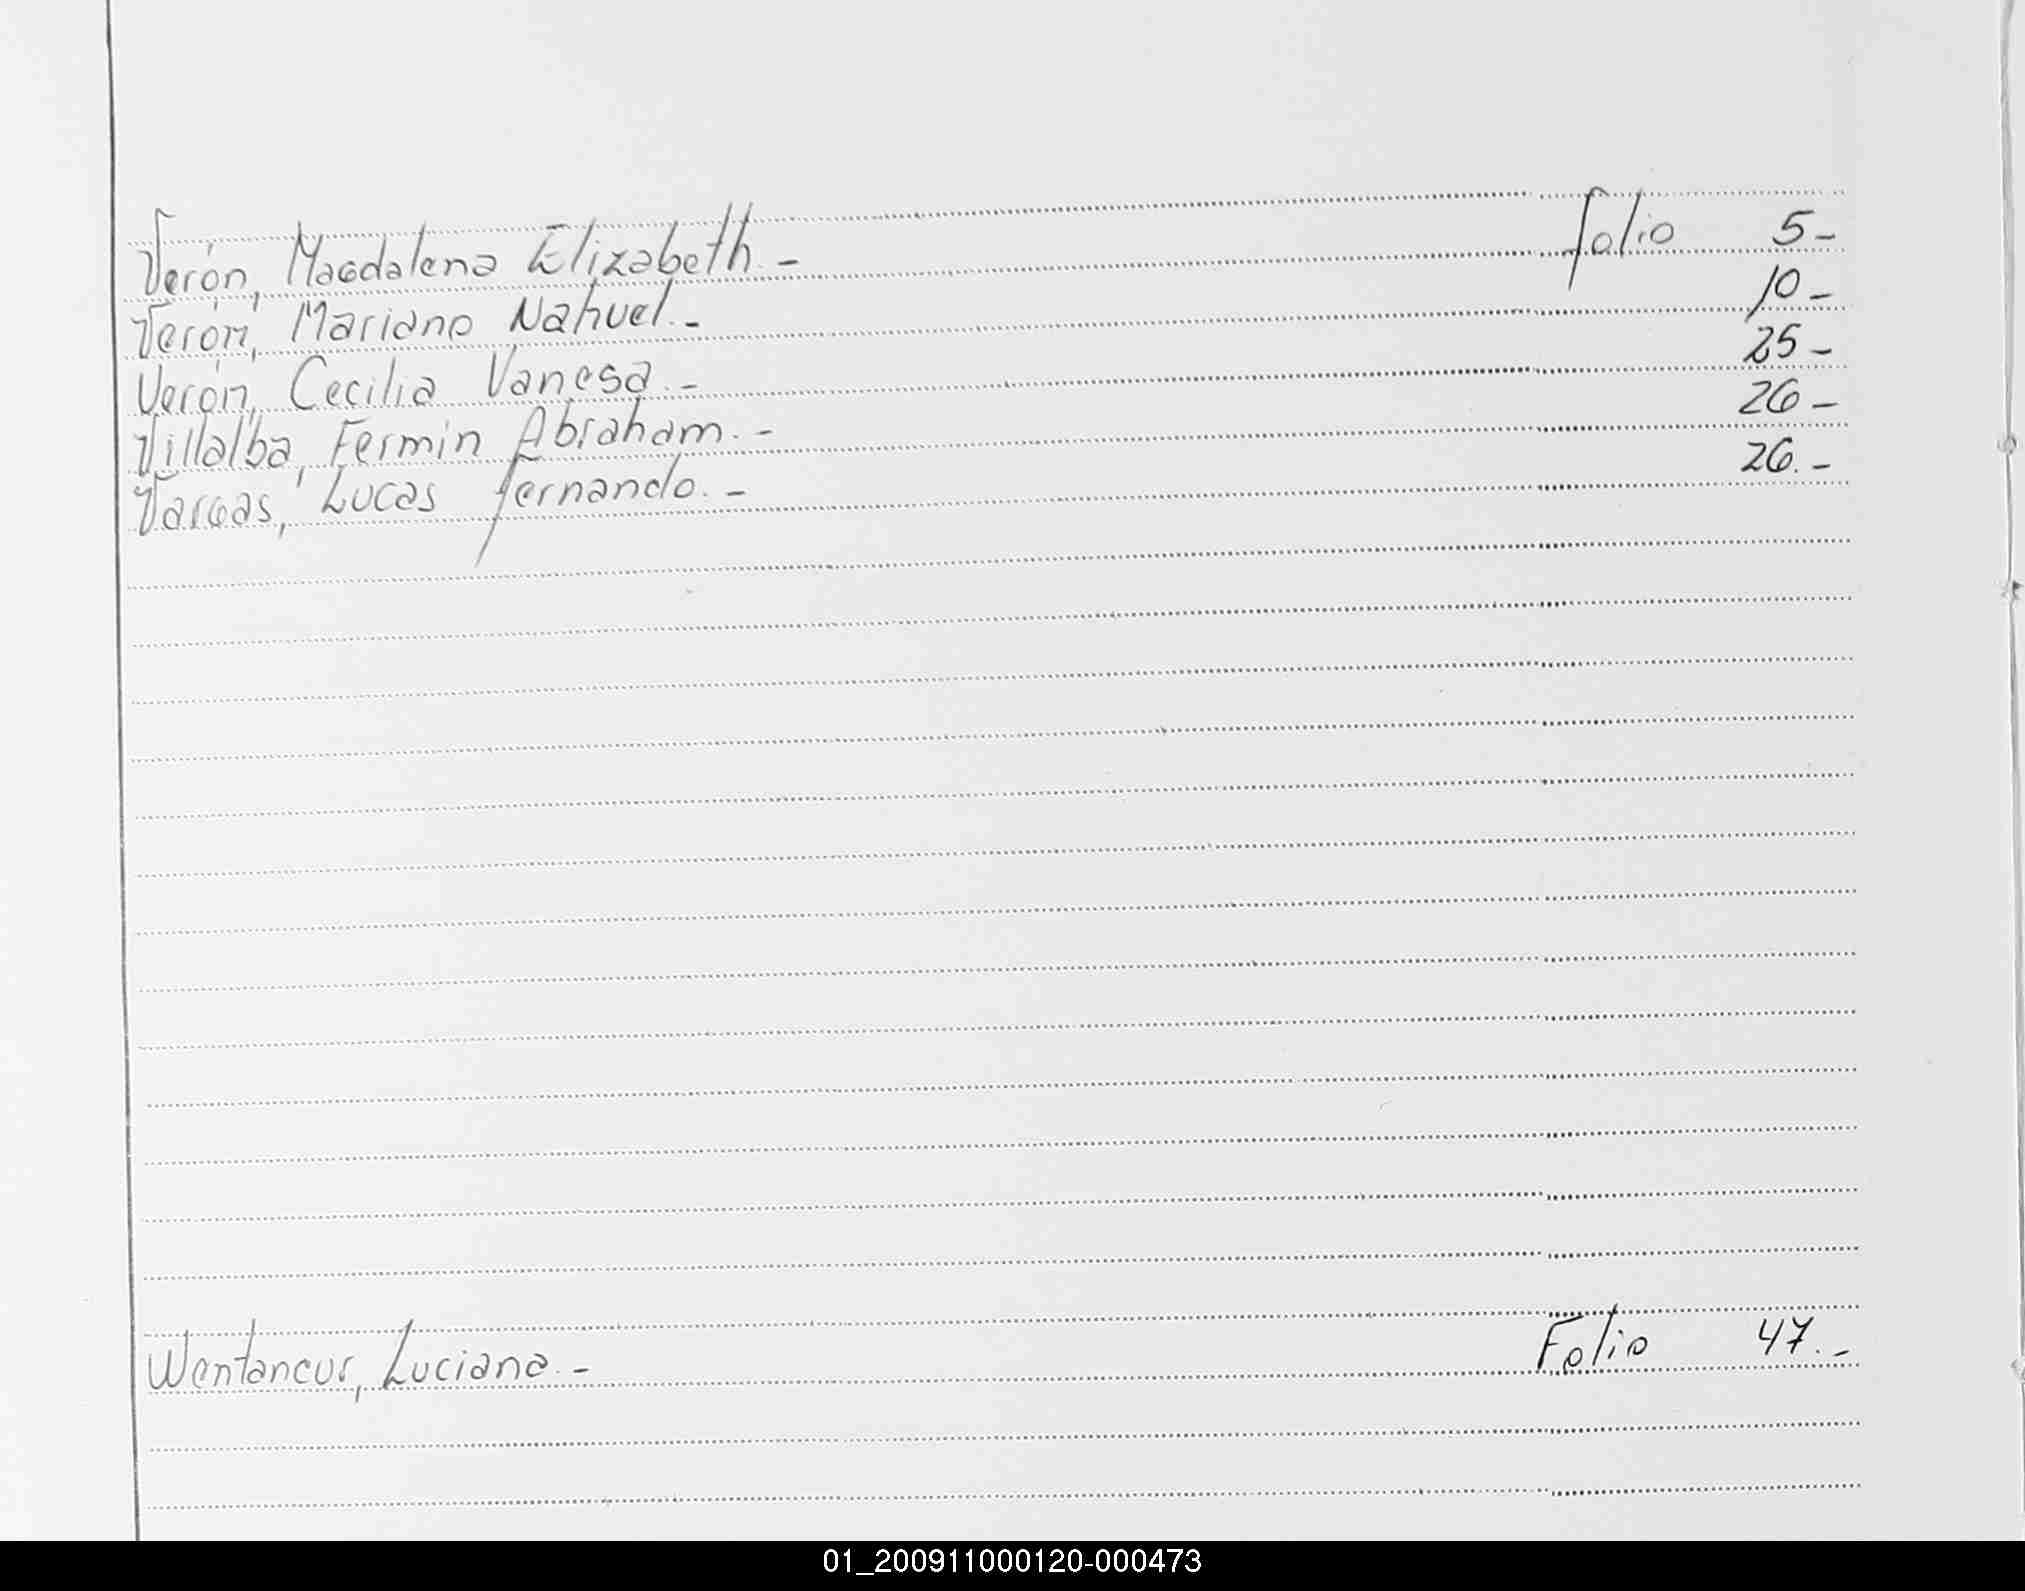 Verón, Magdalena Elizabeth.- folio 5-
Verón, Mariano Nahuel.- 10-
Verón, Cecilia Vanesa.- 25-
Villalba, Fermin Abraham.- 26-
Vargas, Lucas fernando.- 26.-
Wentancur, Luciana.- Folio 47.-
01_200911000120-000473